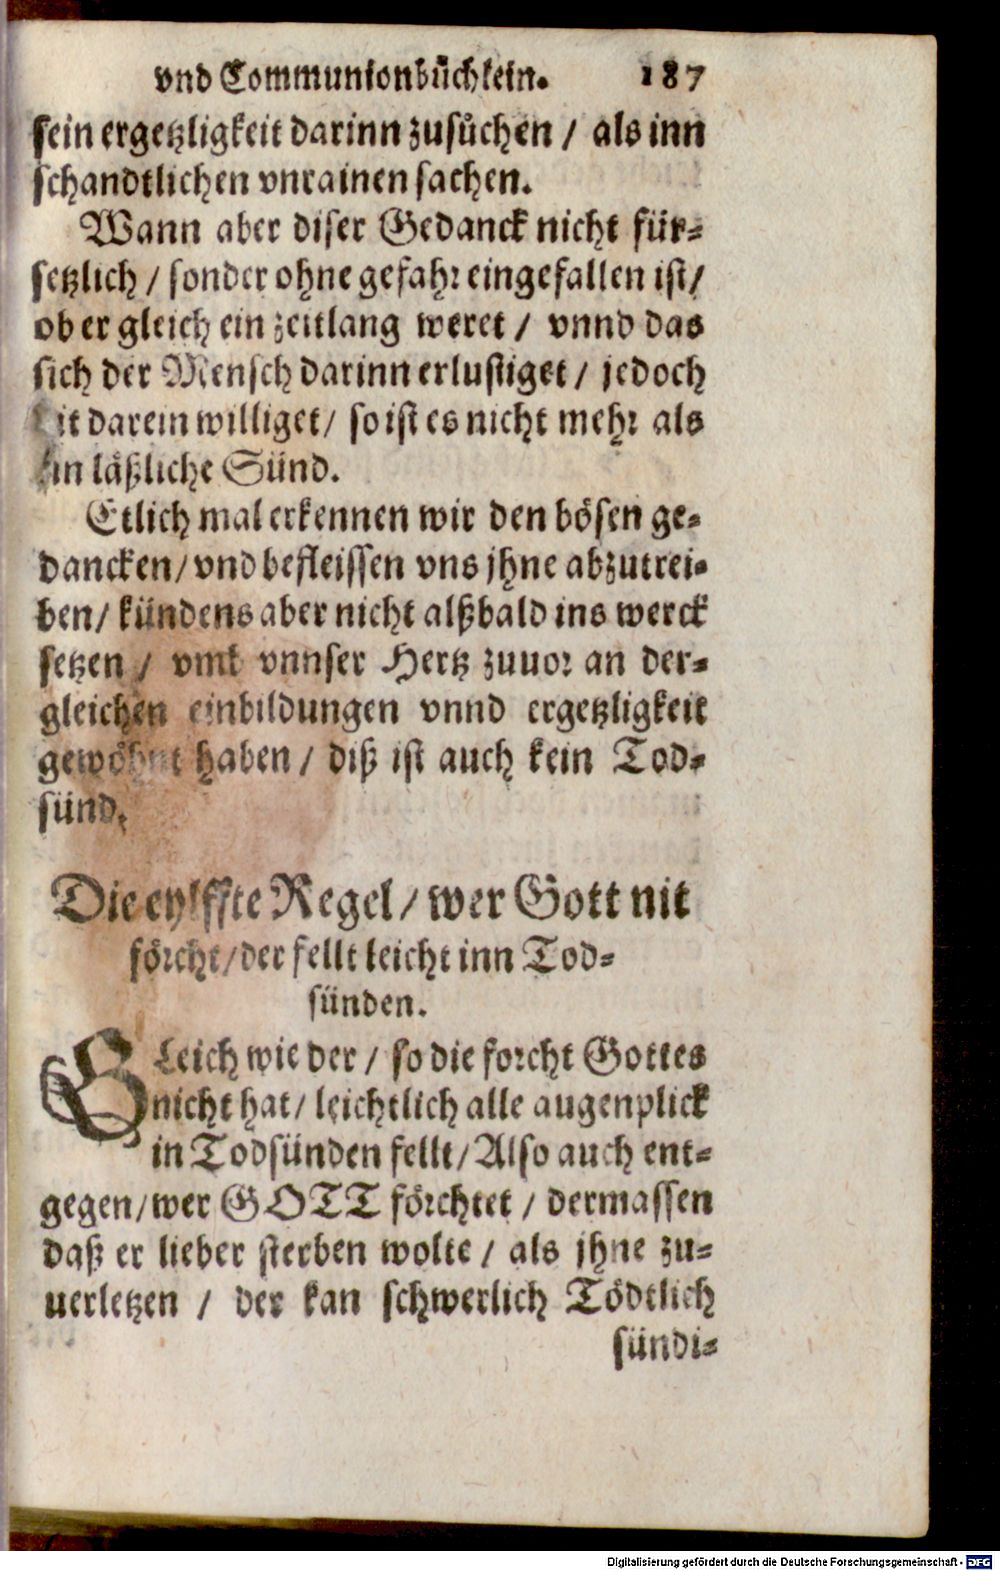 vnd Communionbůchlein. 187
sein ergetzligkeit darinn zusůchen / als inn
schandtlichen vnrainen sachen.
Wann aber diser Gedanck nicht für-
setzlich / sonder ohne gefahr eingefallen ist /
ob er gleich ein zeitlang weret / vnnd das
sich der Mensch darinn erlustiget / jedoch
nit darein williget / so ist es nicht mehr als
ein läßliche Sünd.
Etlich mal erkennen wir den bösen ge-
dancken / vnd befleissen vns jhne abzutrei-
ben / kündens aber nicht alßbald ins werck
setzen / vmb vnnser Hertz zuuor an der-
gleichen einbildungen vnnd ergetzligkeit
gewöhnt haben / diß ist auch kein Tod-
sünd.
Die eylffte Regel / wer Gott nit
förcht / der fellt leicht inn Tod-
sünden.
GLeich wie der / so die forcht Gottes
nicht hat / leichtlich alle augenplick
in Todsünden fellt / Also auch ent-
gegen / wer GOTT förchtet / dermassen
daß er lieber sterben wolte / als jhne zu-
uerletzen / der kan schwerlich Tödtlich
sündi-
Digitalisierung gefördert durch die Deutsche Forschungsgemeinschaft - DFG